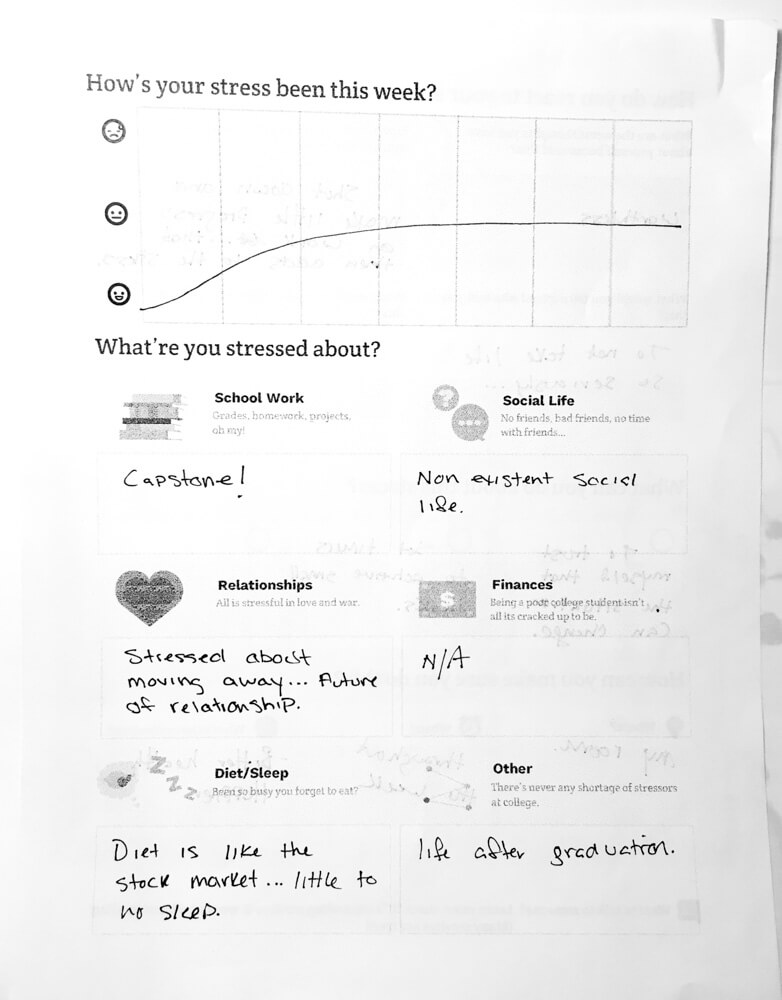 How's your stress been this week?
What're you stressed about?
School Work
Grades, homework, projects,
oh my!
Capstone!
Social Life
No friends, bad friends, no time
with friends...
Non existent social
life.
Relationships
All is stressful in love and war.
Stressed about
moving away... Future
of relationship.
Finances
Being a poor college student isn't
all its cracked up to be.
N/A
Diet/Sleep
Been so busy you forget to eat?
Diet is like the
stock market... little to
no sleep.
Other
There's never any shortage of stressors
at college.
life after graduation.